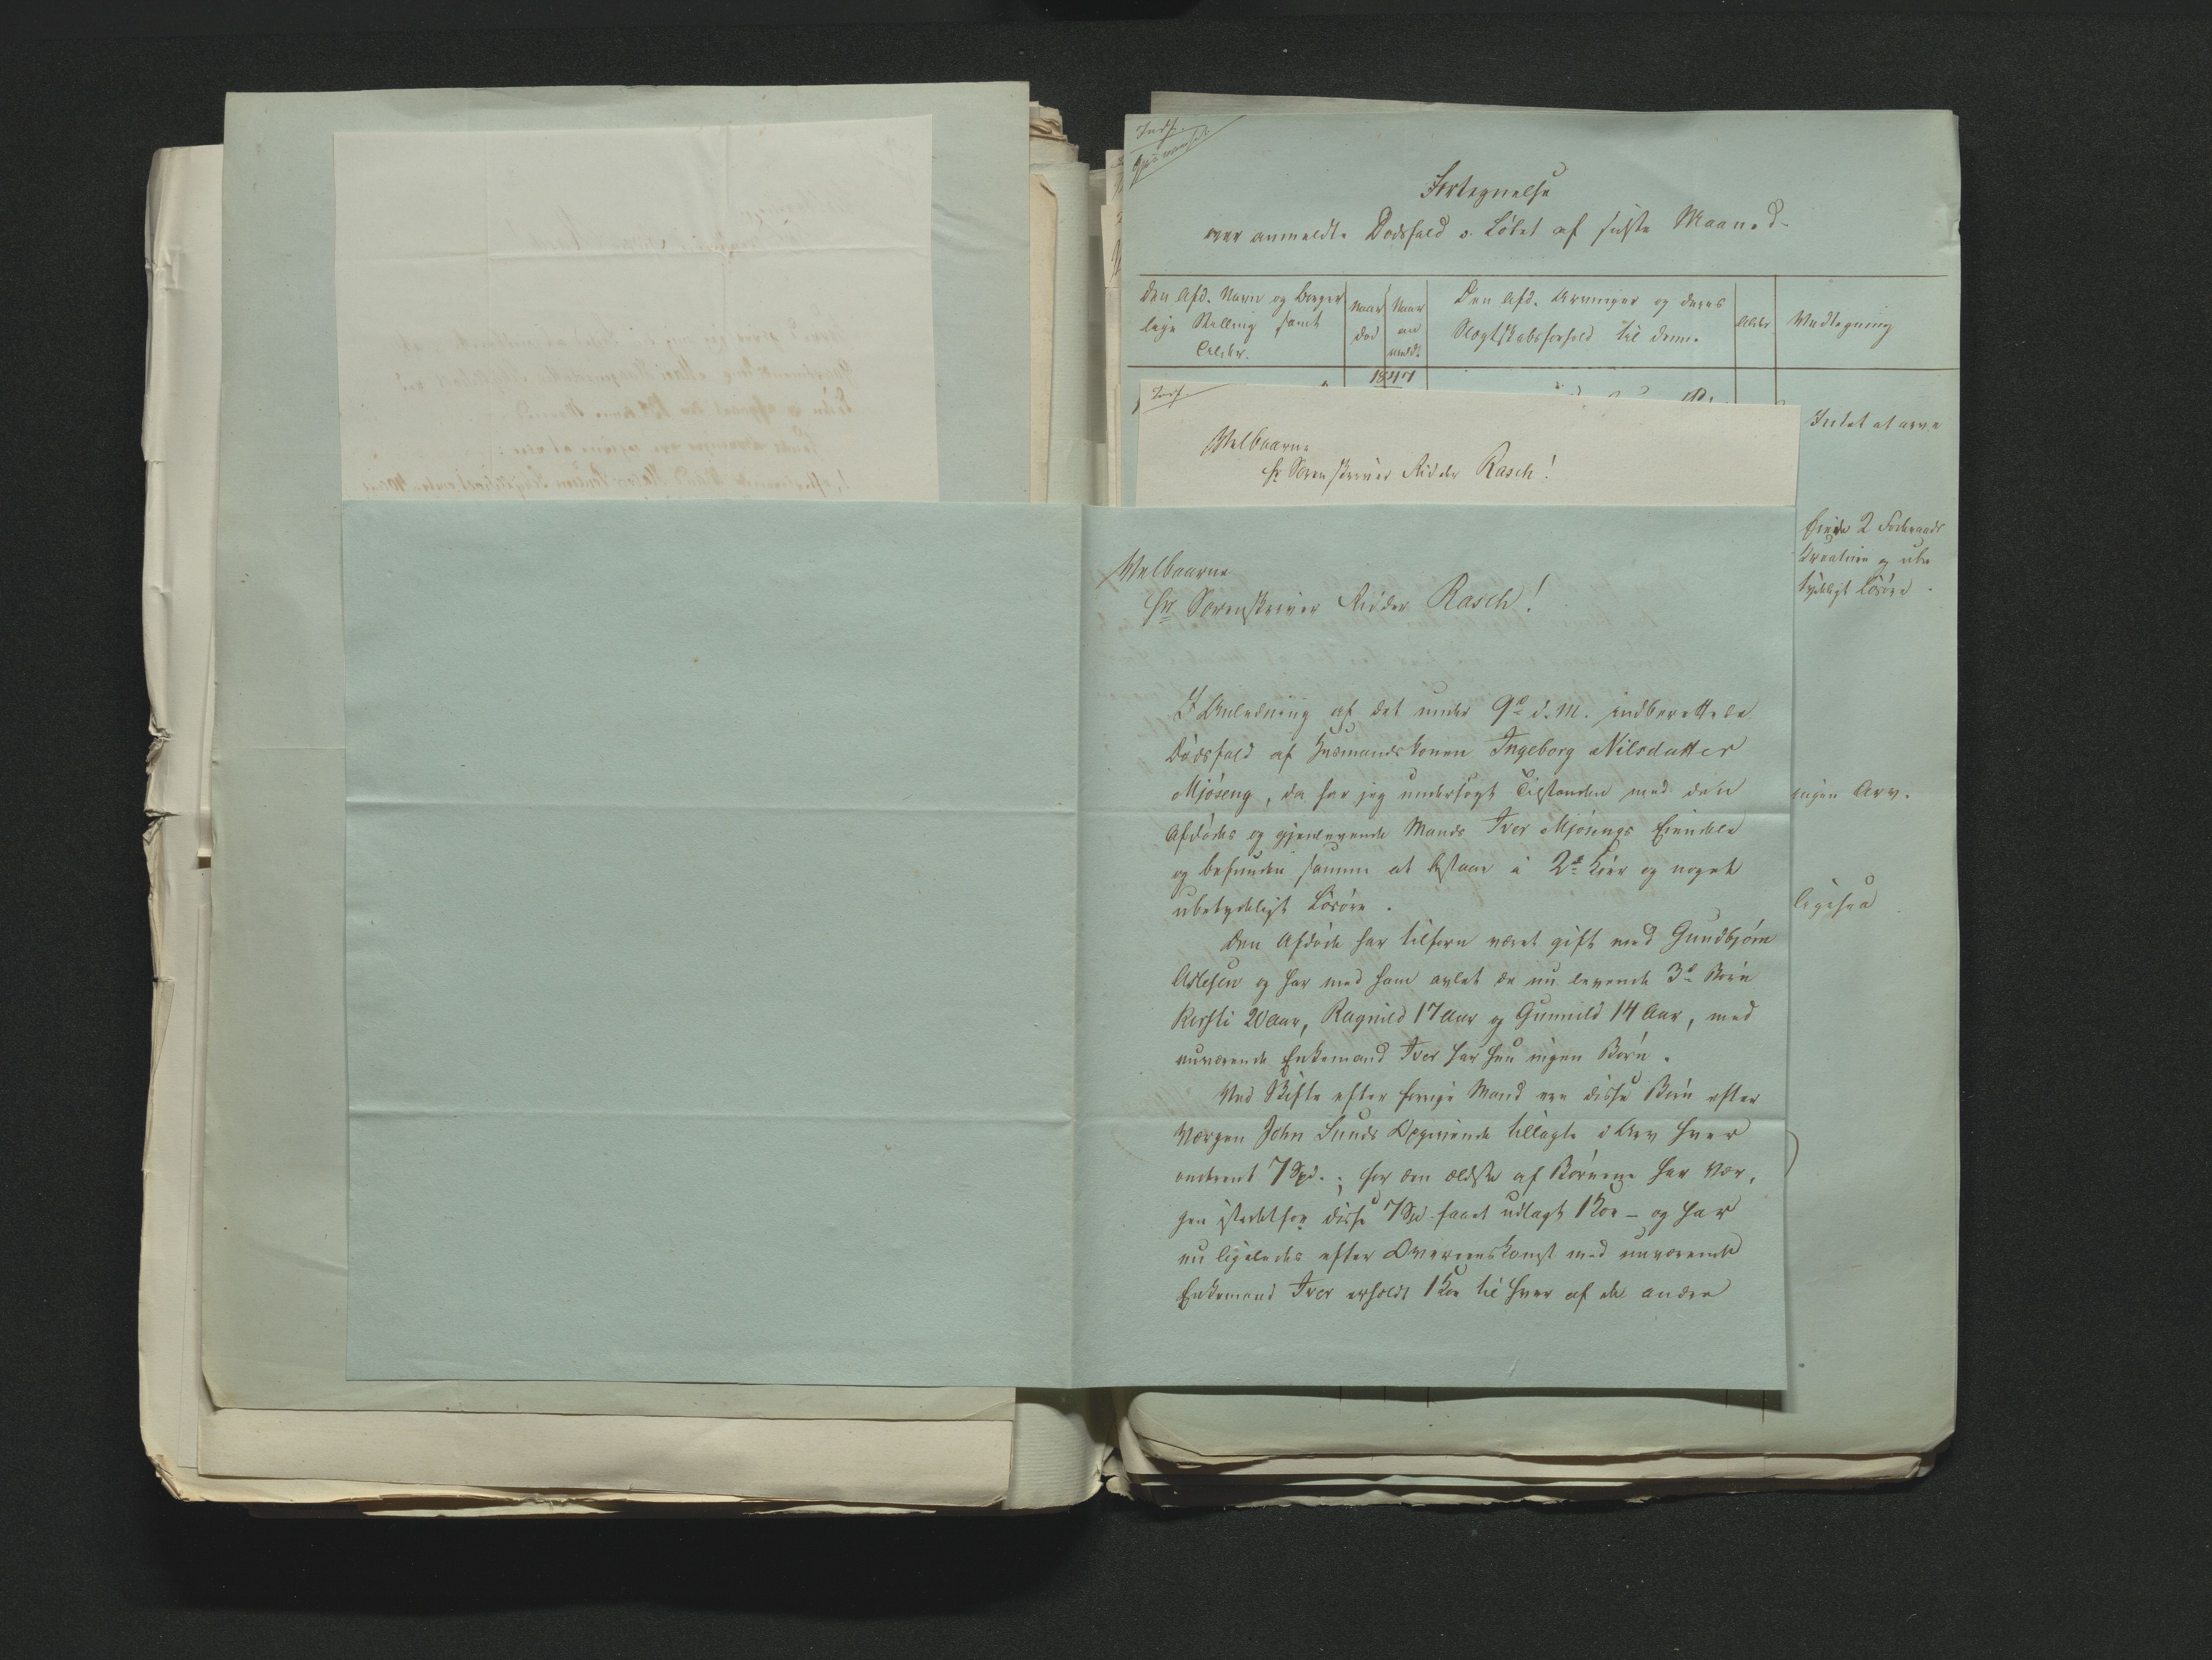 Indf.
Fortegnelse
over anmeldte Dødsfald i Løbet af sidste Maaned
Den Afd. Navn og borger
lige Stilling samt
Alder.
Naar
død
Naar
an
meldt
Den Afd. Arvinger og deres
Slægtskabsforhold til denne
Alder
Vedtegning
1847
Intet at arve
Eiede 2 Foderaads
Kreaturer og ube
tydeligt Løsøre
ingen Arv.
ligesaa
Indf.
Velbaarne
Hr Sorenskriver Ridder Rasch!
Velbaarne
Hr Sorenskriver Ridder Rasch!
I Anledning af det under 9de d. M. indberettede
Dødsfald af Husmandskonen Ingeborg Nilsdatter
Mjøseng, da har jeg undersøgt Tilstanden med den
Afdødes og gjenlevende Mands Iver Mjøsengs Eiendele
og befunden samme at bestaae i 2de Kjør og noget
ubetydeligt Løsøre.
Den Afdøde har tilforn været gift med Gundbjørn
Aslesen og har med ham avlet de nu levende 3de Børn
Kirsti 20 Aar, Ragnild 17 Aar og Gunnild 14 Aar, med
nuværende Enkemand Iver har hun ingen Børn.
Ved Skifte efter forrige Mand ere disse Børn efter
Værgen John Sunds Opgivende tillagte i Arv hver
omtrent 7 Spd.; for den ældste af Børnene har Vær,
gen istedetfor disse 7 Spd faaet udlagt 1 Koe – og har
nu ligeledes efter Overeenskomst med nuværende
Enkemand Iver erholdt 1 Koe til hver af de andre